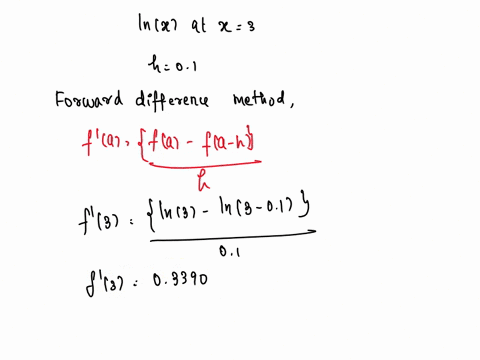 ln(x) at x=3
h=0.1
Forward difference method,
f'(a), {f(a) - f(a-h)}
h
f'(3) = {ln(3) - ln(3-0.1)}
0.1
f'(3) = 0.3390